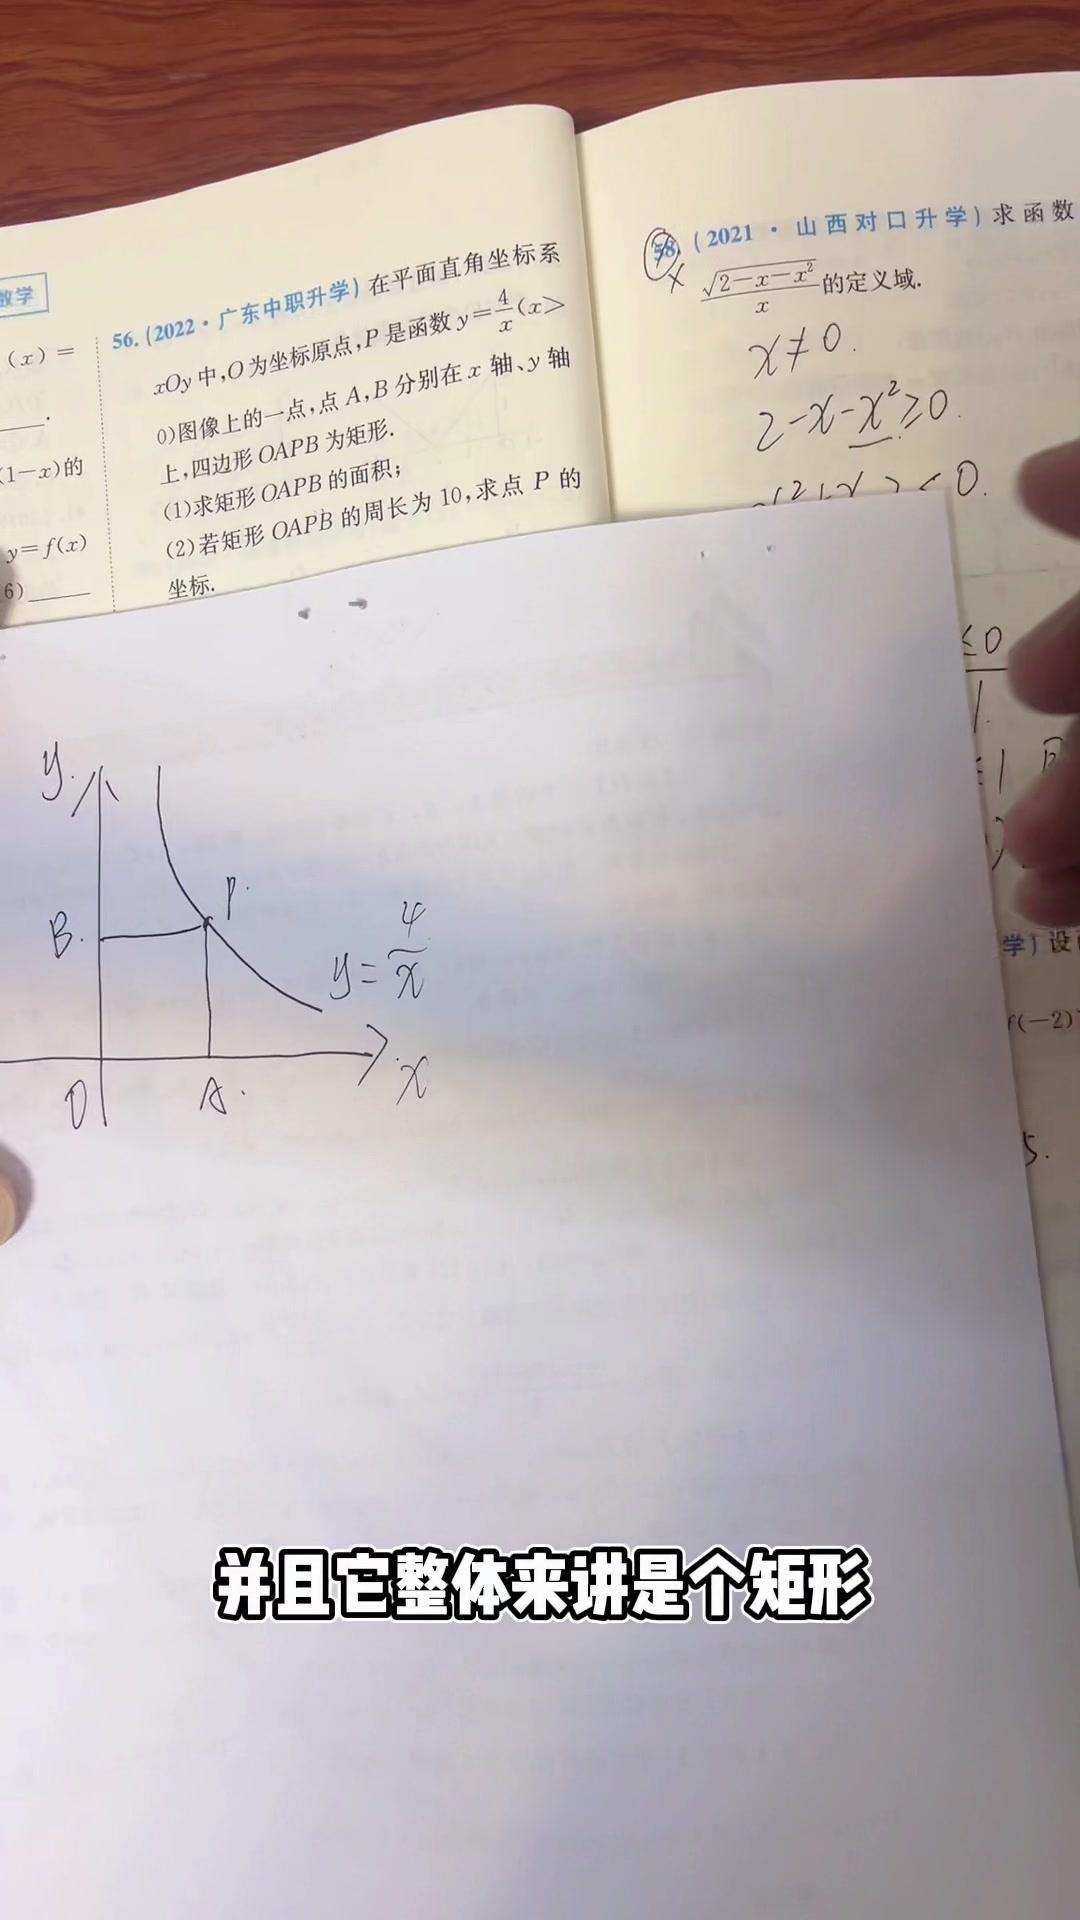 数学
(x)=
(1-x)的
y=f(x)
6)______
56.(2022·广东中职升学)在平面直角坐标系
xOy中,O为坐标原点,P是函数y=4/x(x>
0)图像上的一点,点A,B分别在x轴、y轴
上,四边形OAPB为矩形.
(1)求矩形OAPB的面积;
(2)若矩形OAPB的周长为10,求点P的
坐标.
58.(2021·山西对口升学)求函数
√(2-x-x²)/x的定义域.
x≠0.
2-x-x²≥0.
≤0
学)设
f(-2)
5.
y
P
B
y=4/x
O
A
x
并且它整体来讲是个矩形